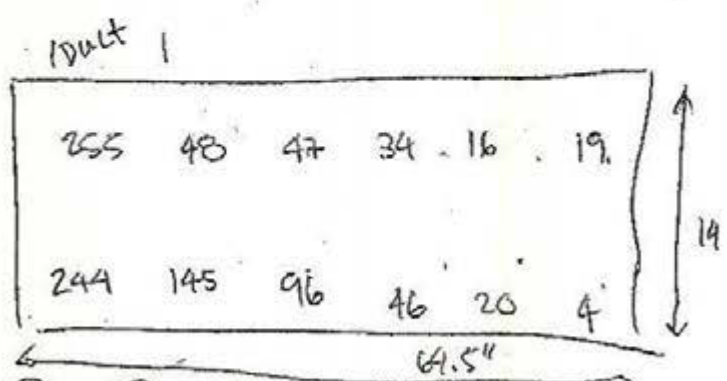 Duct 1
255 48 47 34 16 19
14
244 145 96 46 20 4
64.5"